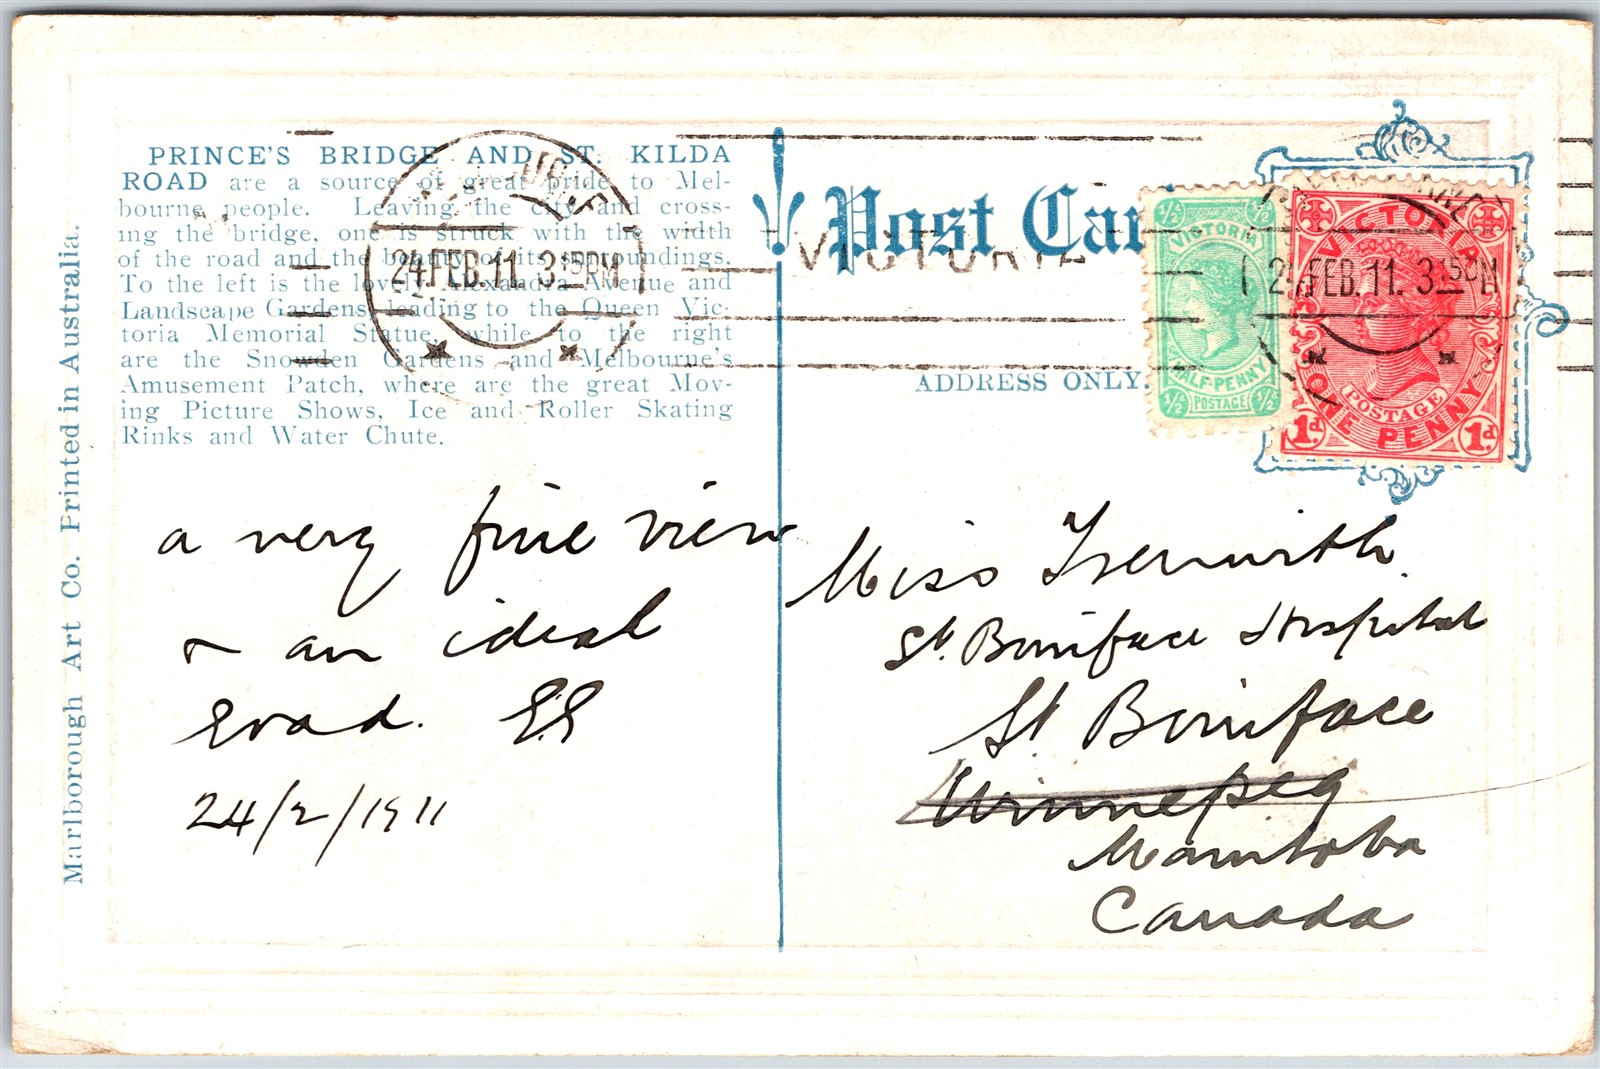 PRINCE'S BRIDGE AND ST. KILDA
ROAD are a source of great pride to Mel-
bourne people. Leaving the city and cross-
ing the bridge, one is struck with the width
of the road and the beauty of its surroundings.
To the left is the lovely Alexandra Avenue and
Landscape Gardens leading to the Queen Vic-
toria Memorial Statue, while to the right
are the Snowden Gardens and Melbourne's
Amusement Patch, where are the great Mov-
ing Picture Shows, Ice and Roller Skating
Rinks and Water Chute.
Marlborough Art Co. Printed in Australia.
24 FEB. 11. 3 15 PM
VICTORIA
Post Car
ADDRESS ONLY.
½ ½
VICTORIA
HALF-PENNY
½ POSTAGE ½
VICTORIA
POSTAGE
ONE PENNY
1d 1d
24 FEB. 11. 3 15 PM
a very fine view
& an ideal
road. E.E
24/2/1911
Miss
St. Boniface Hospital
St Boniface
Winnepeg
Manitoba
Canada